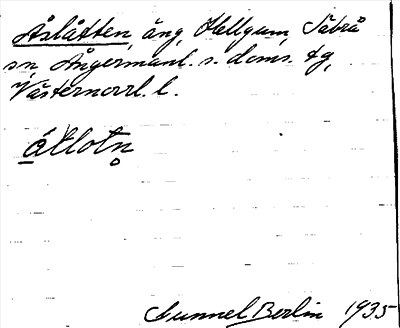 Åslåtten, äng, Hällgum, Säbrå
sn, Ångermanl. s. doms. tg,
Västernorrl. l.
åtlotn̥
Gunnel Berlin 1935